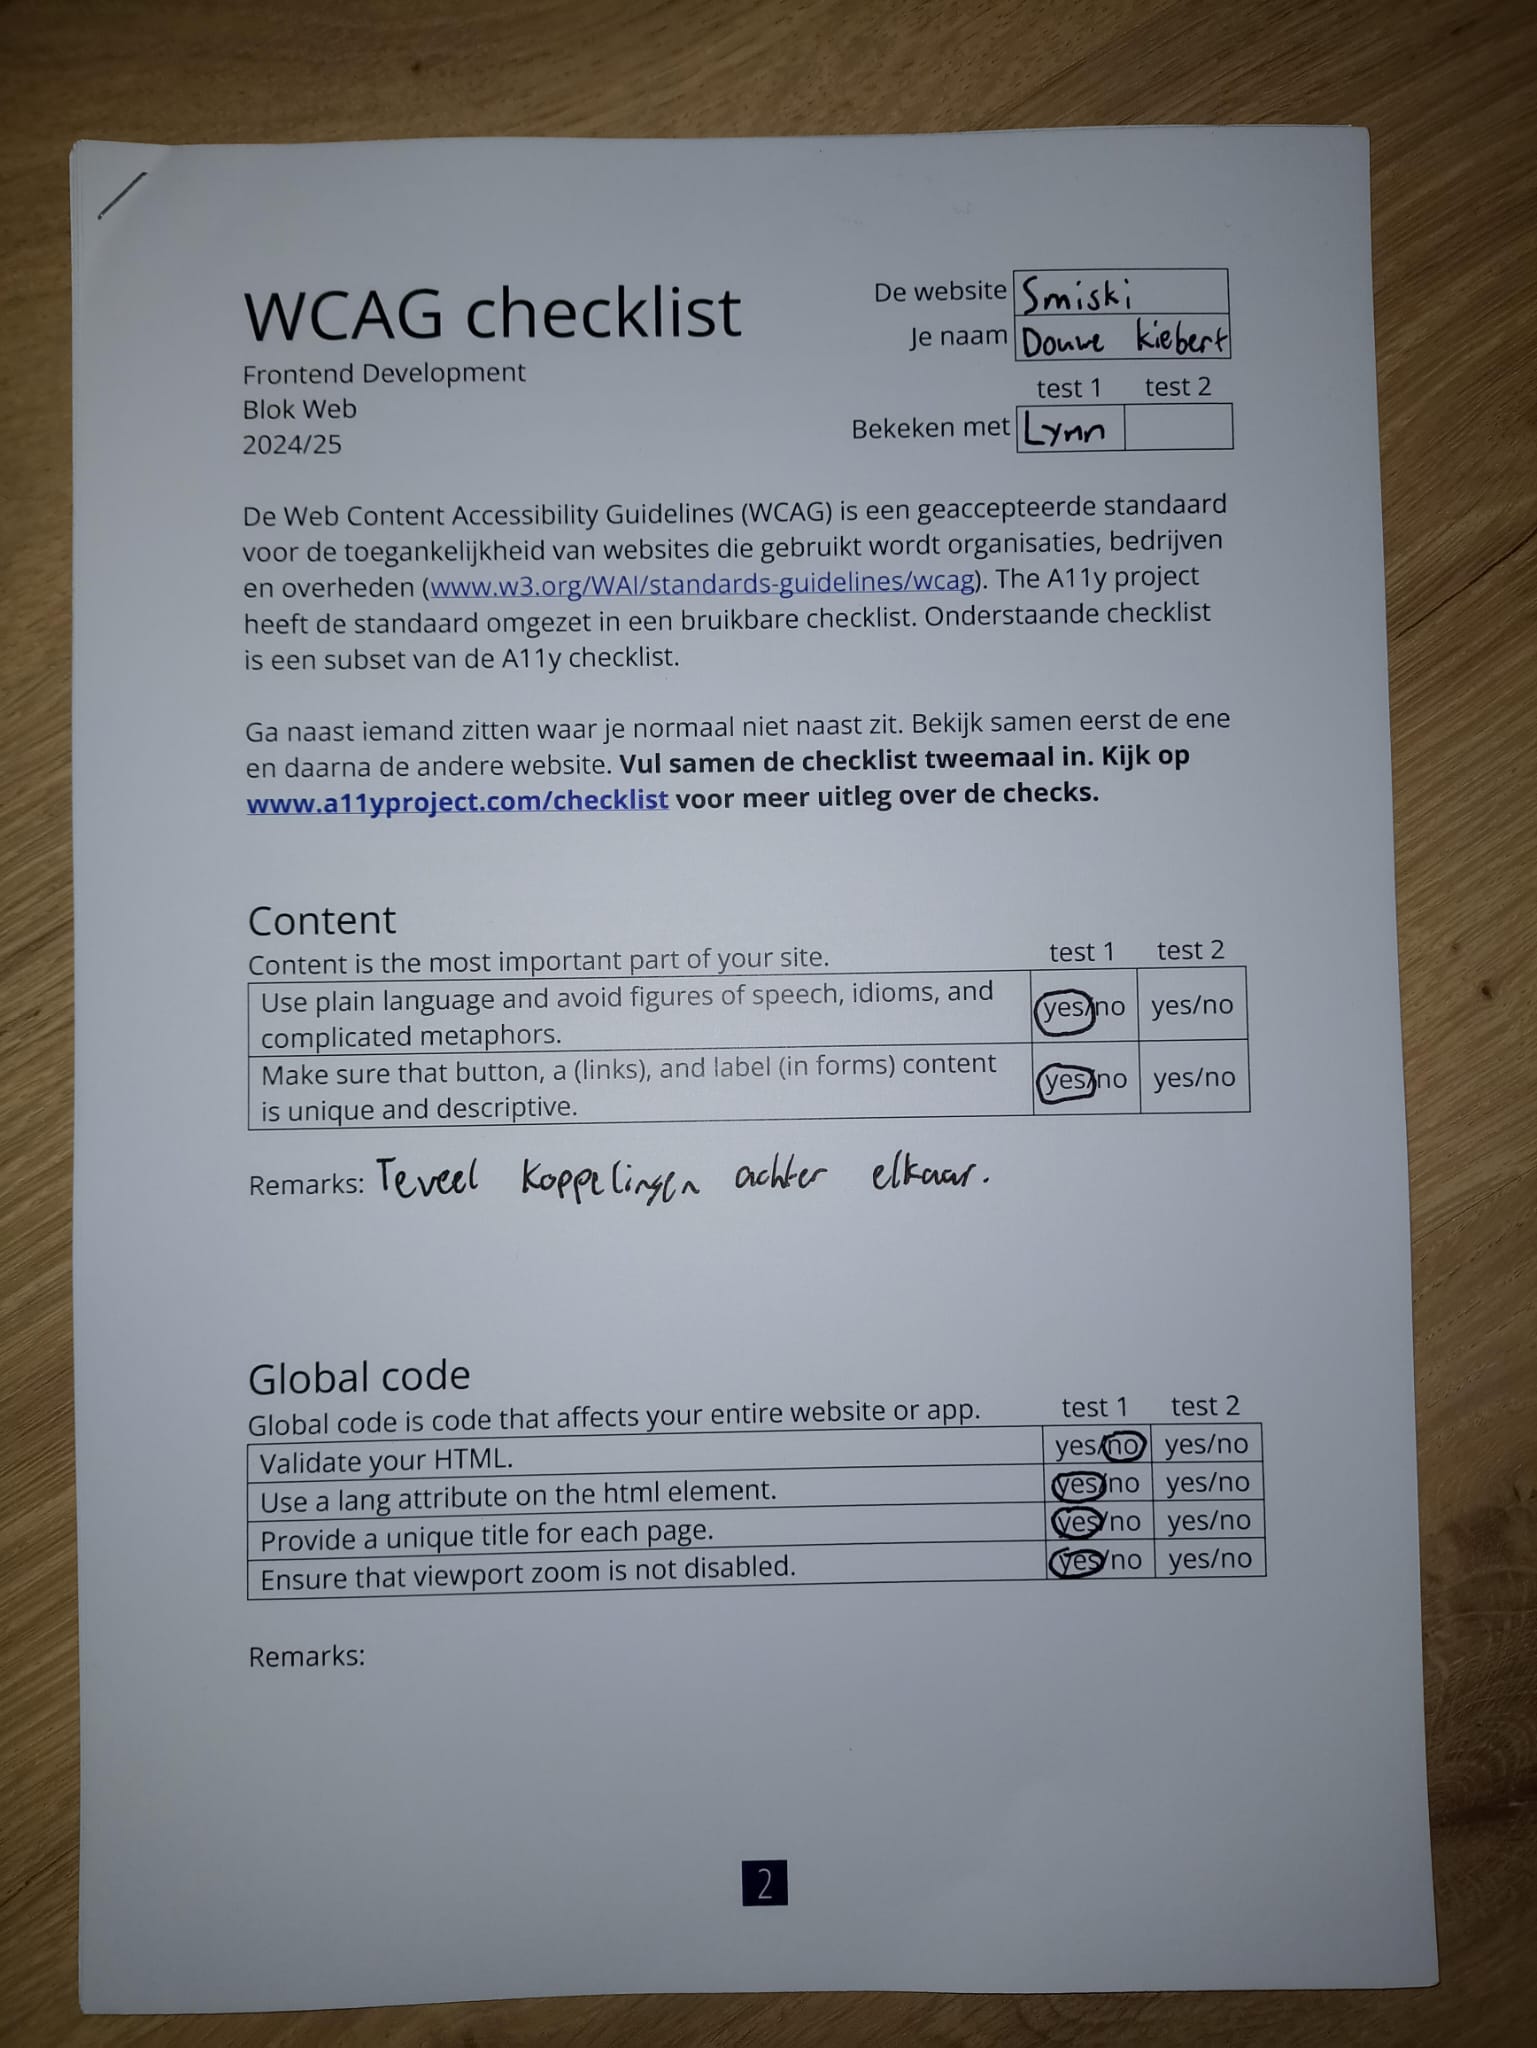 WCAG checklist
Frontend Development
Blok Web
2024/25
De website Smiski
Je naam Douwe Kiebert
test 1 test 2
Bekeken met Lynn
De Web Content Accessibility Guidelines (WCAG) is een geaccepteerde standaard
voor de toegankelijkheid van websites die gebruikt wordt organisaties, bedrijven
en overheden (www.w3.org/WAI/standards-guidelines/wcag). The A11y project
heeft de standaard omgezet in een bruikbare checklist. Onderstaande checklist
is een subset van de A11y checklist.
Ga naast iemand zitten waar je normaal niet naast zit. Bekijk samen eerst de ene
en daarna de andere website. Vul samen de checklist tweemaal in. Kijk op
www.a11yproject.com/checklist voor meer uitleg over de checks.
Content
Content is the most important part of your site. test 1 test 2
Use plain language and avoid figures of speech, idioms, and
complicated metaphors. yes/no yes/no
Make sure that button, a (links), and label (in forms) content
is unique and descriptive. yes/no yes/no
Remarks: Teveel koppelingen achter elkaar.
Global code
Global code is code that affects your entire website or app. test 1 test 2
Validate your HTML. yes/no yes/no
Use a lang attribute on the html element. yes/no yes/no
Provide a unique title for each page. yes/no yes/no
Ensure that viewport zoom is not disabled. yes/no yes/no
Remarks:
2